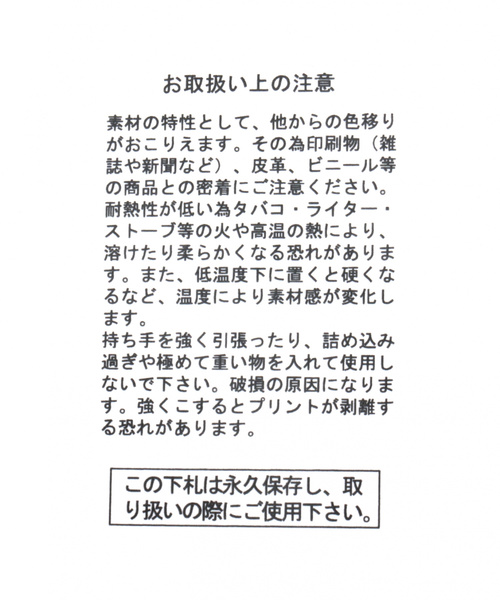 お取扱い上の注意
素材の特性として、他からの色移り
がおこりえます。その為印刷物（雑
誌や新聞など）、皮革、ビニール等
の商品との密着にご注意ください。
耐熱性が低い為タバコ・ライター・
ストーブ等の火や高温の熱により、
溶けたり柔らかくなる恐れがありま
す。また、低温度下に置くと硬くな
るなど、温度により素材感が変化し
ます。
持ち手を強く引張ったり、詰め込み
過ぎや極めて重い物を入れて使用し
ないで下さい。破損の原因になりま
す。強くこするとプリントが剥離す
る恐れがあります。
この下札は永久保存し、取
り扱いの際にご使用下さい。